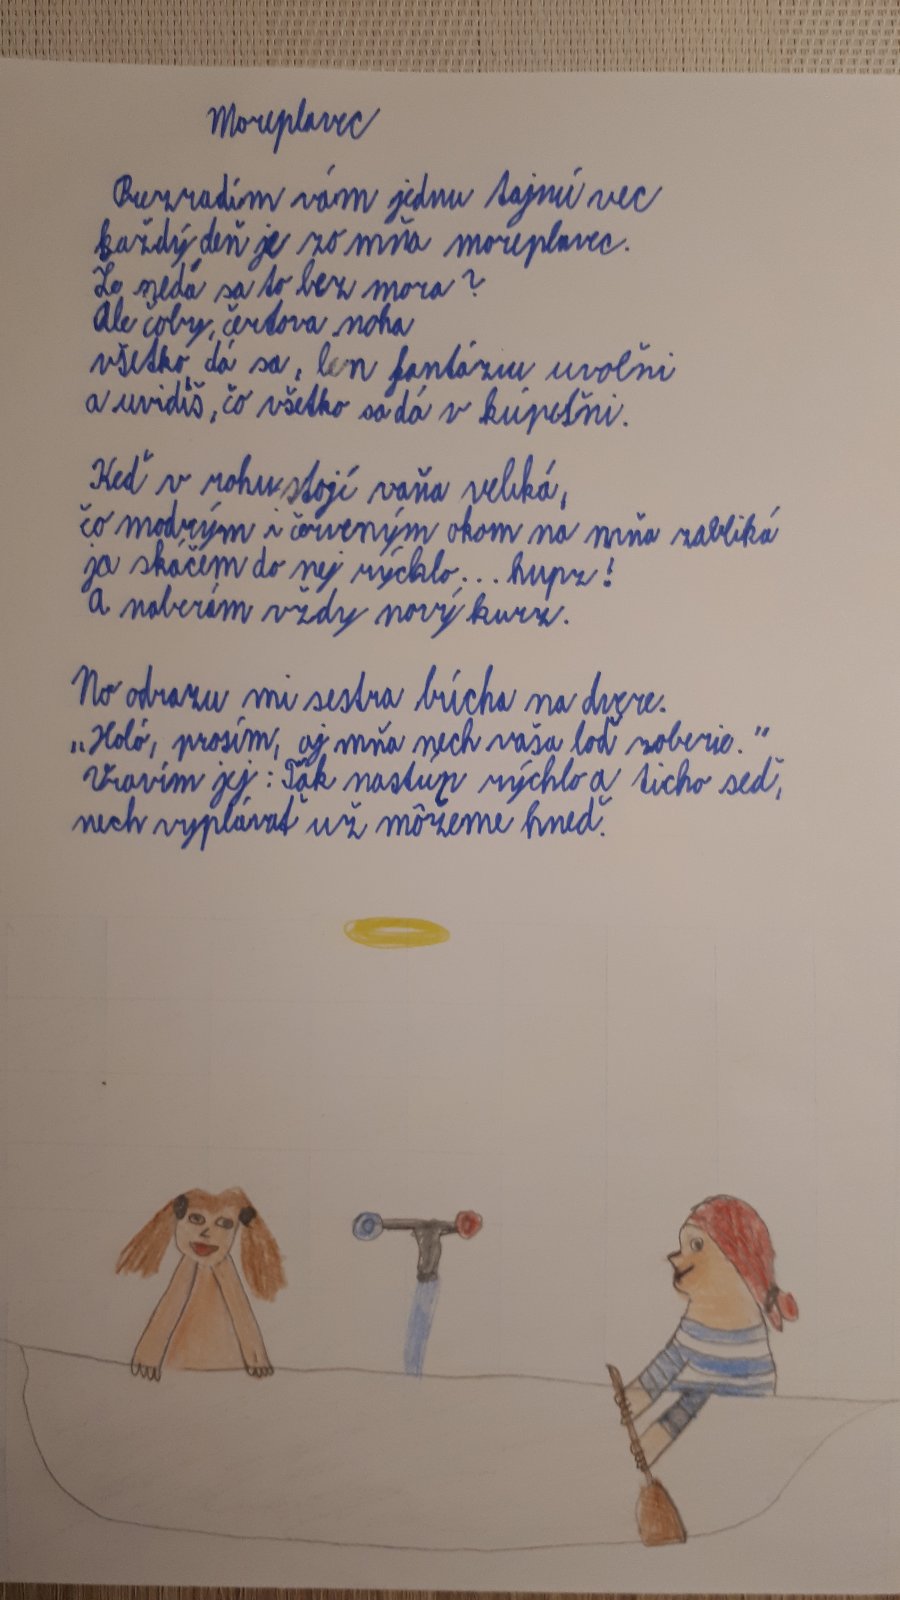 Moreplavec
Prezradím vám jednu tajnú vec
každý deň je zo mňa moreplavec.
Že nedá sa to bez mora?
Ale čoby, čertova noha
všetko dá sa, len fantáziu uvoľni
a uvidíš, čo všetko sa dá v kúpeľni.
Keď v rohu stojí vaňa veliká,
čo modrým i červeným okom na mňa zabliká
ja skáčem do nej rýchlo... hupz!
A naberám vždy nový kurz.
No odrazu mi sestra búcha na dvere.
„Haló, prosím, aj mňa nech vaša loď zoberie."
Vravím jej: Tak nastúp rýchlo a ticho seď,
nech vyplávať už môžeme hneď.